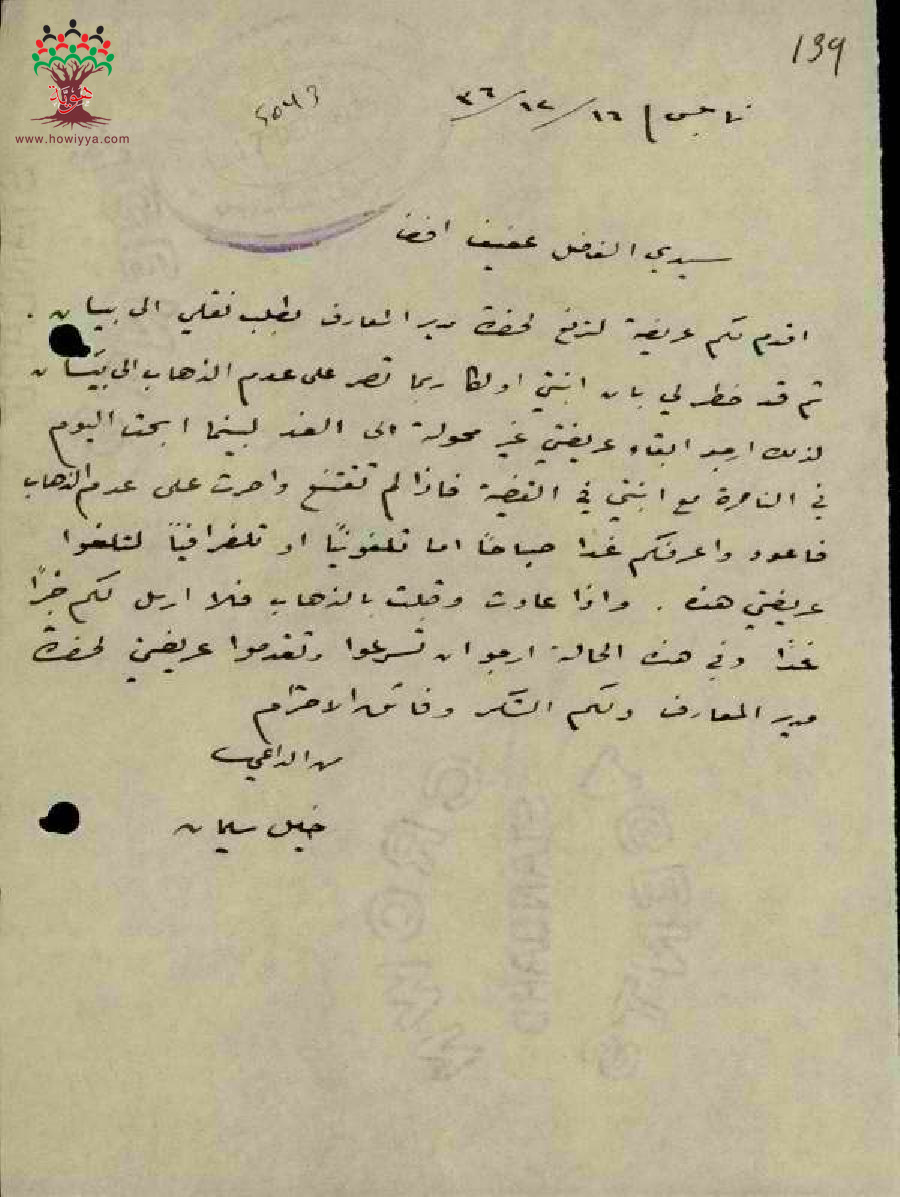 139
5043
نابلس / ١٦/١٢/٣٦
هوية
www.howiyya.com
سيدي الفاضل عفيف افندي
اقدم لكم عريضة لترفع لحضرة مدير المعارف بطلب نقلي الى بيسان .
ثم قد خطر لي بان ابنتي اولگا ربما تصر على عدم الذهاب الى بيسان
لذلك ارجو ابقاء عريضتي غير محولة الى الغد لبينما ابحث اليوم
في الناصرة مع ابنتي في القضية فاذا لم تقتنع واصرت على عدم الذهاب
فاعود واعرفكم غدا صباحاً اما تلفونيًا او تلغرافيًا لتلغوا
عريضتي هذه . واذا عادت وقبلت بالذهاب فلا ارسل لكم خبرًا
غدًا وفي هذه الحالة ارجو ان تسرعوا وتقدموا عريضتي لحضرة
مدير المعارف ولكم الشكر وفائق الاحترام
من الداعي
خليل سليمان
STANDARD